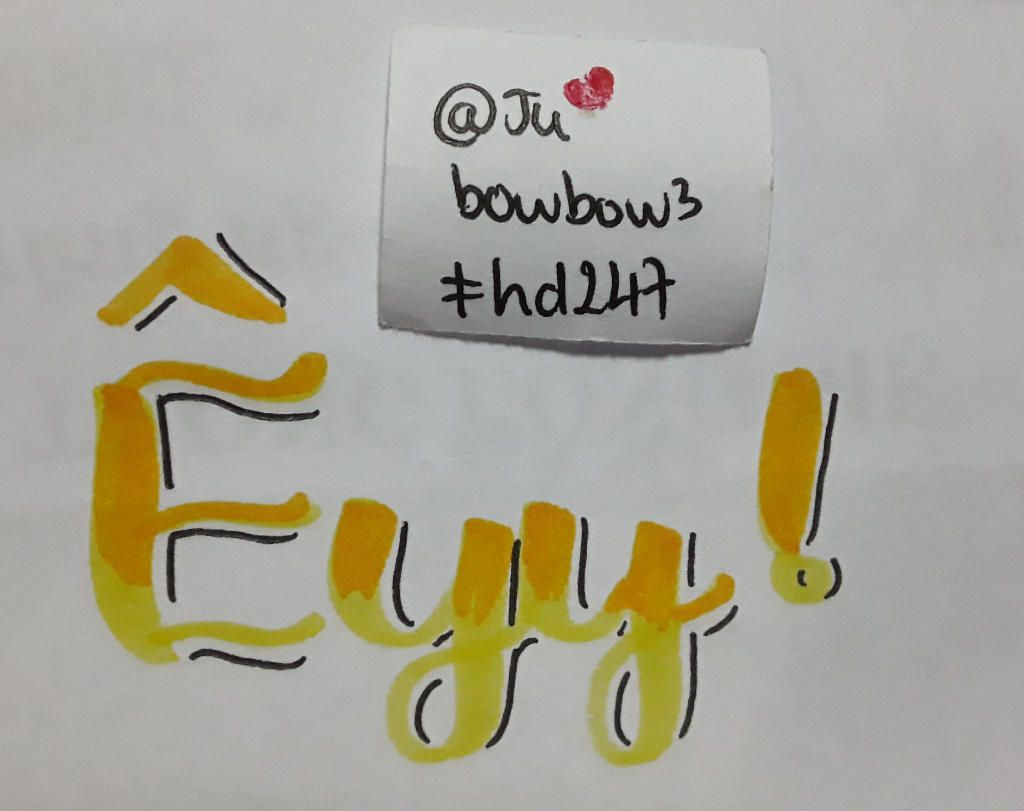 @Ju
bowbow3
#hd247
Êyy!